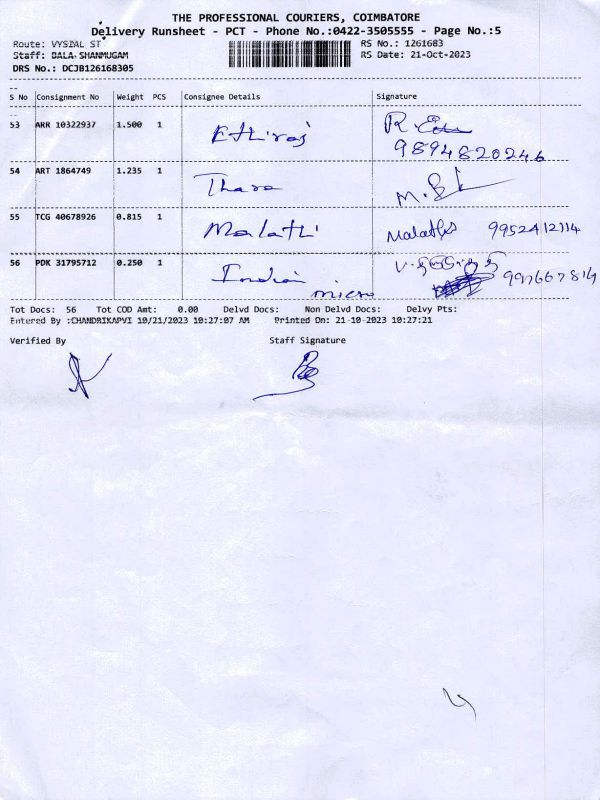 THE PROFESSIONAL COURIERS, COIMBATORE
Delivery Runsheet - PCT - Phone No.:0422-3505555 - Page No.:5
Route: VYSIAL ST RS No.: 1261683
Staff: BALA-SHANMUGAM RS Date: 21-Oct-2023
DRS No.: DCJB126168305
S No Consignment No Weight PCS Consignee Details Signature
53 ARR 10322937 1.500 1 Ethiraj R.
9894820246
54 ART 1864749 1.235 1 Thara
55 TCG 40678926 0.815 1 Malathi Malathi 9952412114
56 PDK 31795712 0.250 1 Indian
micro
Tot Docs: 56 Tot COD Amt: 0.00 Delvd Docs: Non Delvd Docs: Delvy Pts:
Entered By :CHANDRIKAPVI 10/21/2023 10:27:07 AM Printed On: 21-10-2023 10:27:21
Verified By Staff Signature